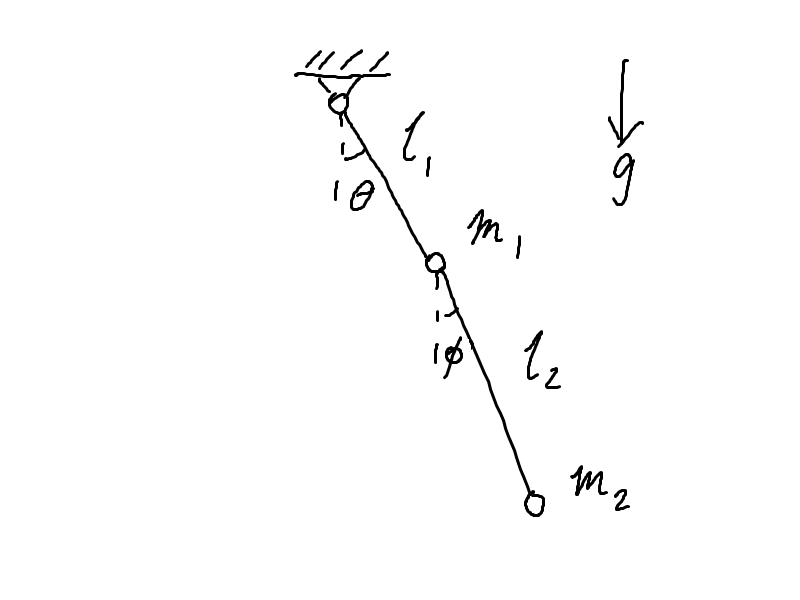 l₁
g
θ
m₁
ϕ
l₂
m₂